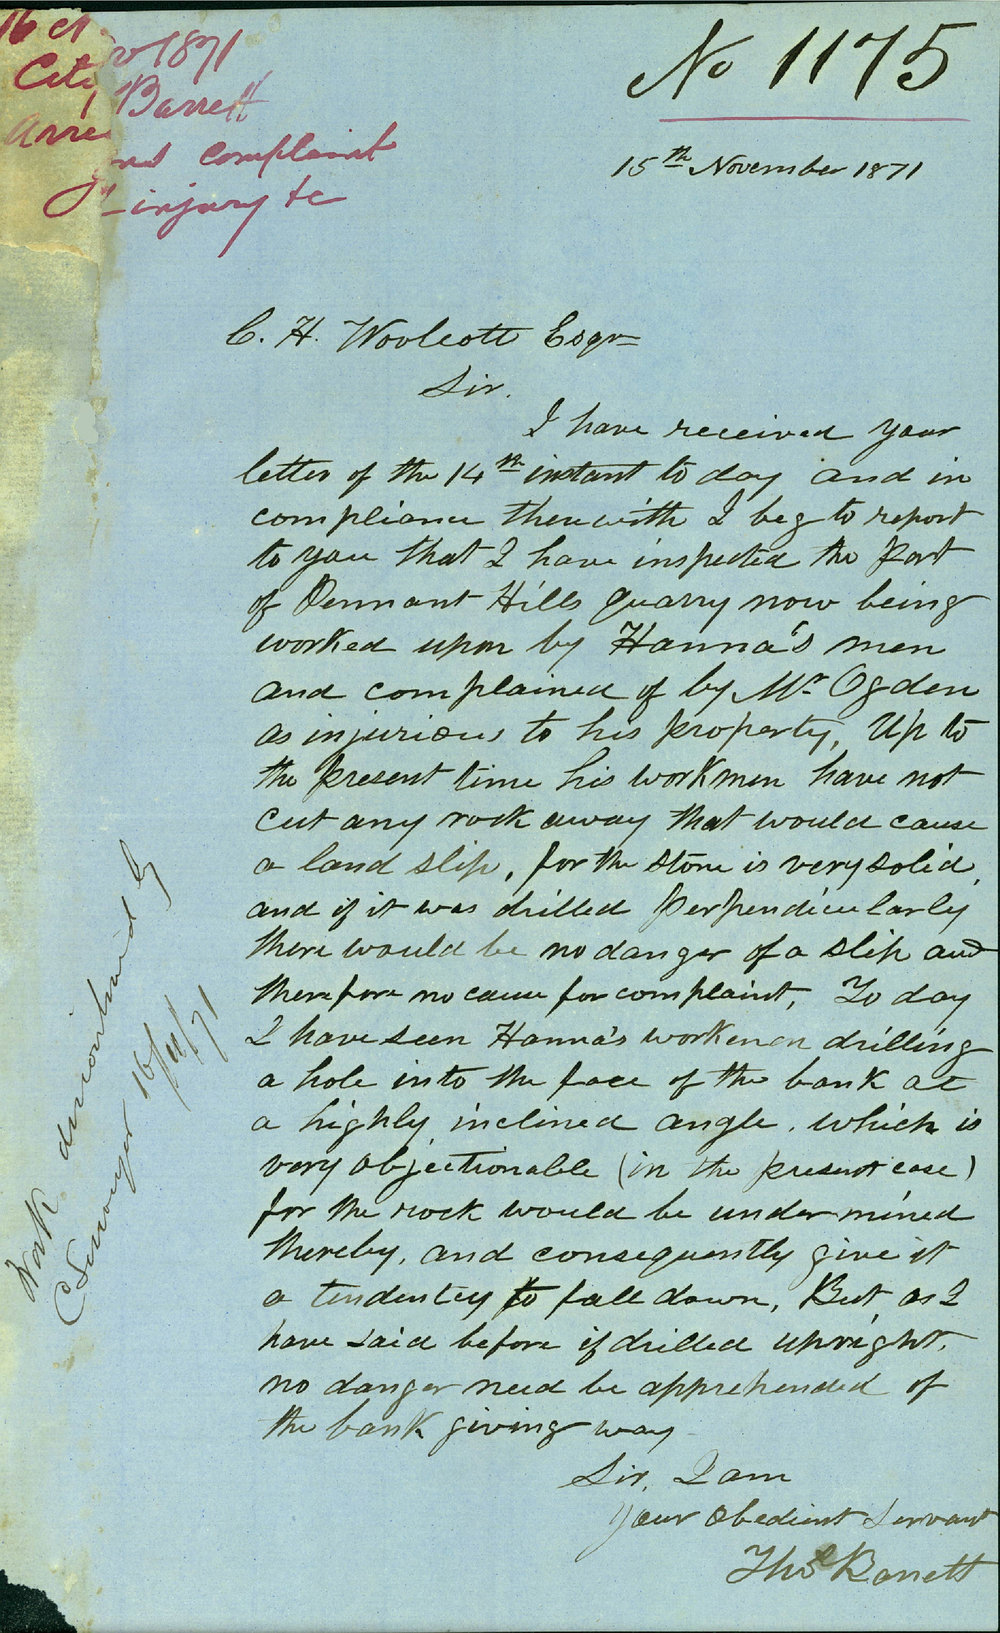 No 1175
16
1871
City
Barrett
complaint
injury &c
15th November 1871
C. H. Woolcott Esqr
Sir.
I have received your
letter of the 14th instant to day and in
compliance therewith I beg to report
to you that I have inspected the part
of Pennant Hills quarry now being
worked upon by Hanna's men
and complained of by Mr Ogden
as injurious to his property, Up to
the present time his workmen have not
cut any rock away that would cause
a land slip, for the stone is very solid,
and if it was drilled perpendicularly
there would be no danger of a slip and
therefore no cause for complaint, To day
I have seen Hanna's workmen drilling
a hole into the face of the bank at
a highly inclined angle, which is
very objectionable (in the present case)
for the rock would be undermined
thereby, and consequently give it
a tendency to fall down, But, as I
have said before if drilled upright,
no danger need be apprehended of
the bank giving way
Sir, I am
Your obedient servant
Thos Barrett
Work discontinued
16/11/71